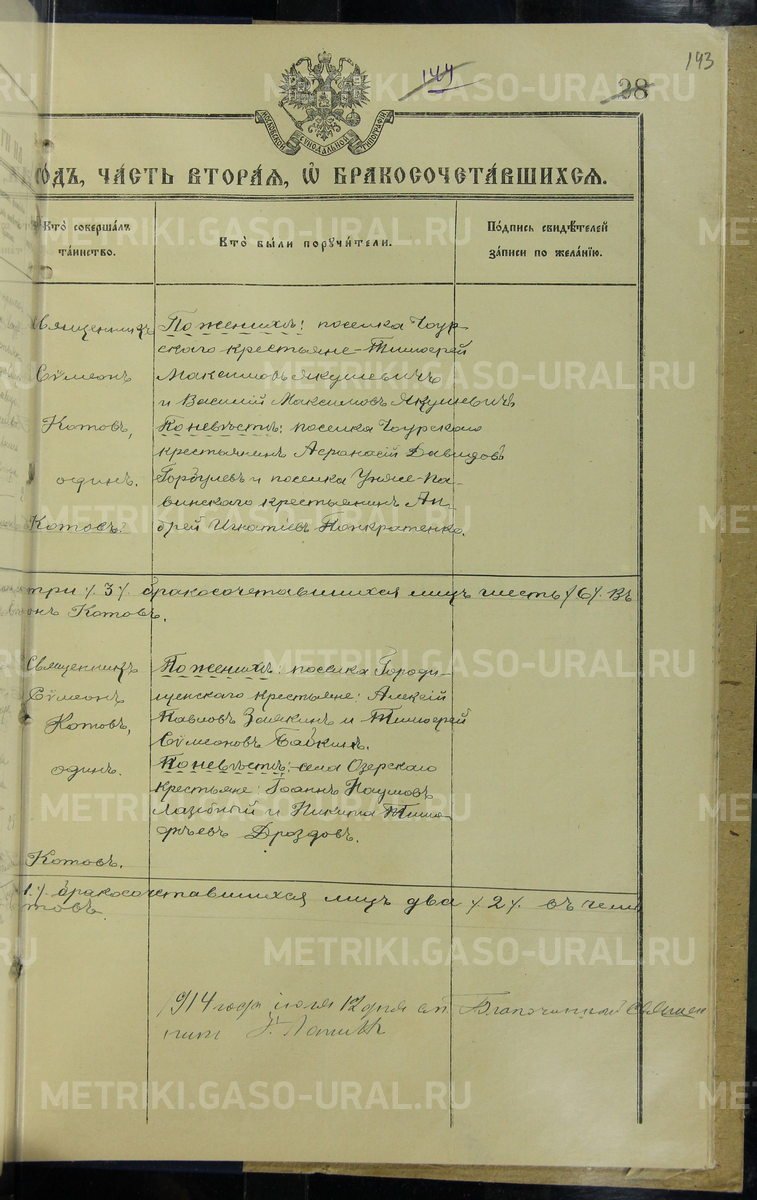 193
144
28
МОСКОВСКОЙ СѴНОДАЛЬНОЙ ТИПОГРАФІИ
ГО́ДЪ, ЧА́СТЬ ВТОРА́Я, Ѡ҆ БРАКОСОЧЕТА́ВШИХСЯ.
Кто̀ соверша́лъ та́инство.
Кто̀ бы́ли поручи́тели.
По́дпись свидѣ́телей за́писи по жела́нїю.
Священникъ
Сѵмеонъ
Котовъ,
одинъ.
Котовъ.
По женихѣ: поселка Чаур-
скаго крестьяне - Тимофей
Максимовъ Якушевичъ
и Василій Максимовъ Якушевичъ
По невѣстѣ: поселка Чаурскаго
крестьянинъ Афанасій Давидовъ
Горбулевъ и поселка Унже-Па-
винскаго крестьянинъ Ан-
дрей Игнатіевъ Панкратенко.
три /3/ бракосочетавшихся лицъ шесть /6/ Въ
онъ Котовъ.
Священникъ
Сѵмеонъ
Котовъ,
одинъ.
Котовъ.
По женихѣ: поселка Городи-
щенскаго крестьяне: Алексій
Павловъ Заякинъ и Тимофей
Сѵмеоновъ Байкинъ.
По невѣстѣ: села Озерскаго
крестьяне: Іоаннъ Наумовъ
Лазебный и Никита Тимо-
фѣевъ Дроздовъ.
1./. бракосочетавшихся лицъ два /.2/. въ чемъ
товъ.
1914 года іюля 12 дня Благочинный Священ
никъ
METRIKI.GASO-URAL.RU